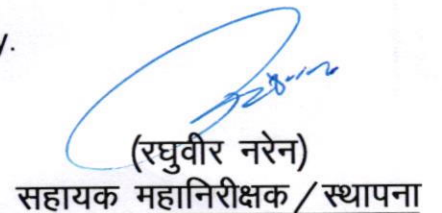 (रघुवीर नरेन)
सहायक महानिरीक्षक/स्थापना